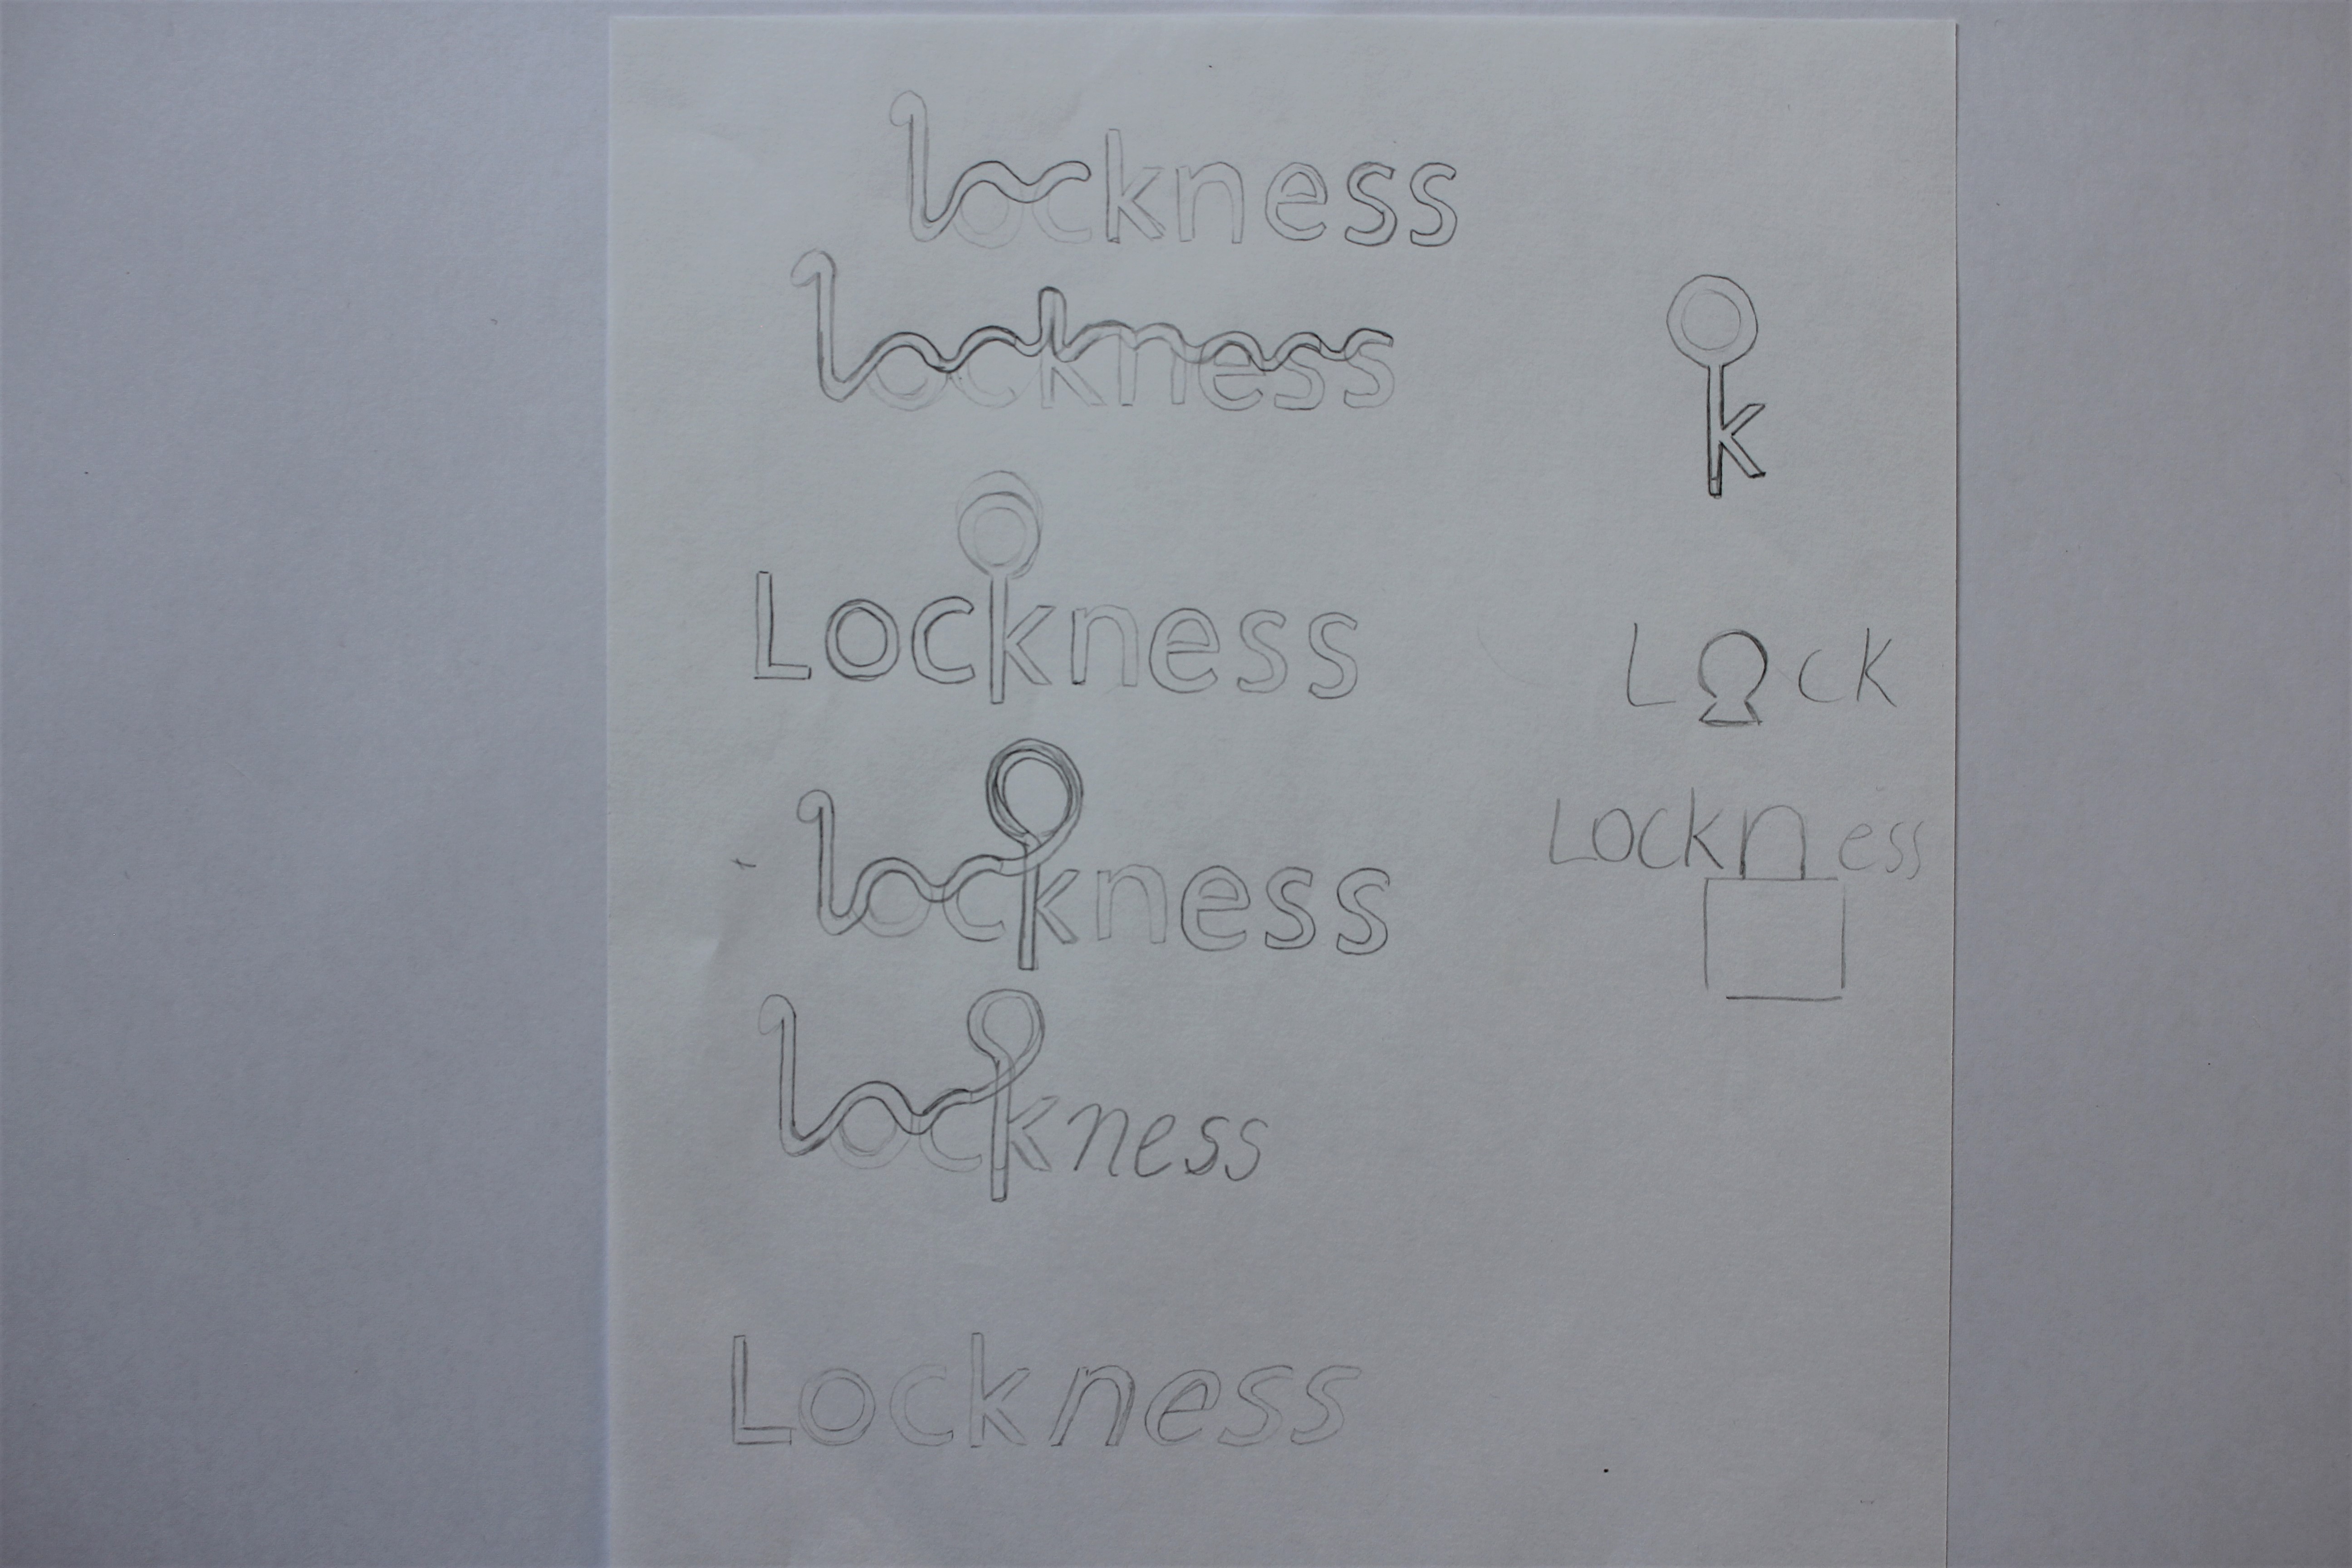 lockness
lockness
k
Lockness
Lock
lockness
Lockness
lockness
Lockness